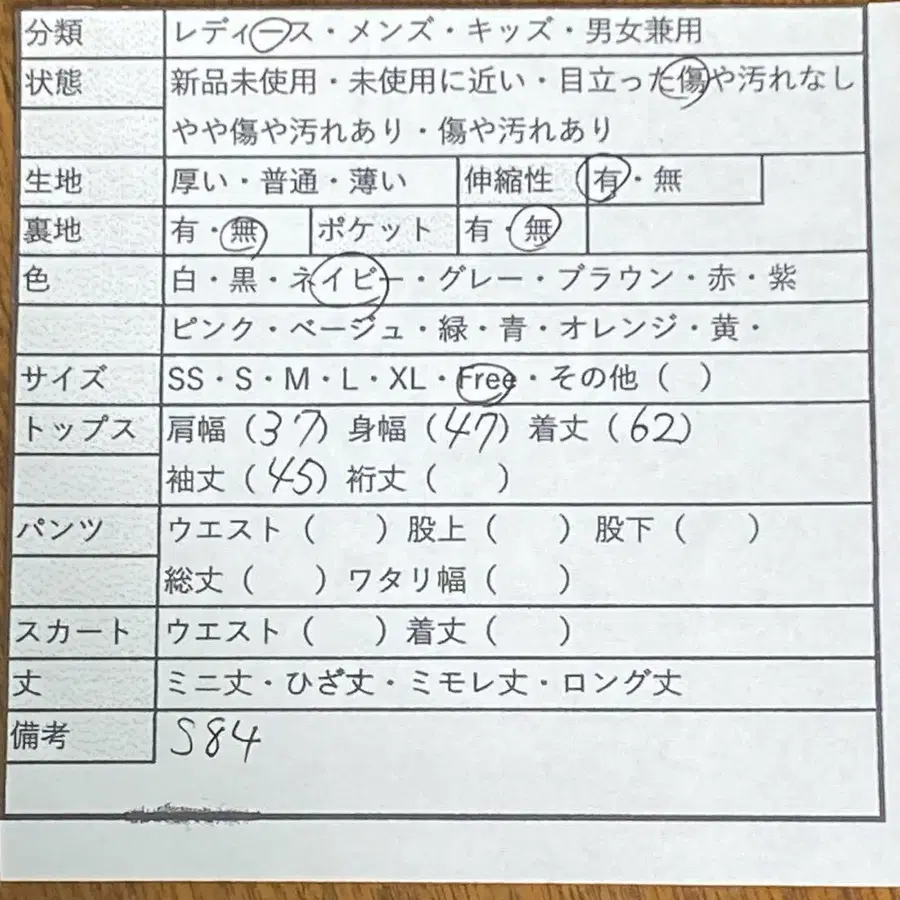 分類 レディース・メンズ・キッズ・男女兼用
状態 新品未使用・未使用に近い・目立った傷や汚れなし
やや傷や汚れあり・傷や汚れあり
生地 厚い・普通・薄い 伸縮性 有・無
裏地 有・無 ポケット 有・無
色 白・黒・ネイビー・グレー・ブラウン・赤・紫
ピンク・ベージュ・緑・青・オレンジ・黄・
サイズ SS・S・M・L・XL・Free・その他（ ）
トップス 肩幅（37）身幅（47）着丈（62）
袖丈（45）裄丈（ ）
パンツ ウエスト（ ）股上（ ）股下（ ）
総丈（ ）ワタリ幅（ ）
スカート ウエスト（ ）着丈（ ）
丈 ミニ丈・ひざ丈・ミモレ丈・ロング丈
備考 S84